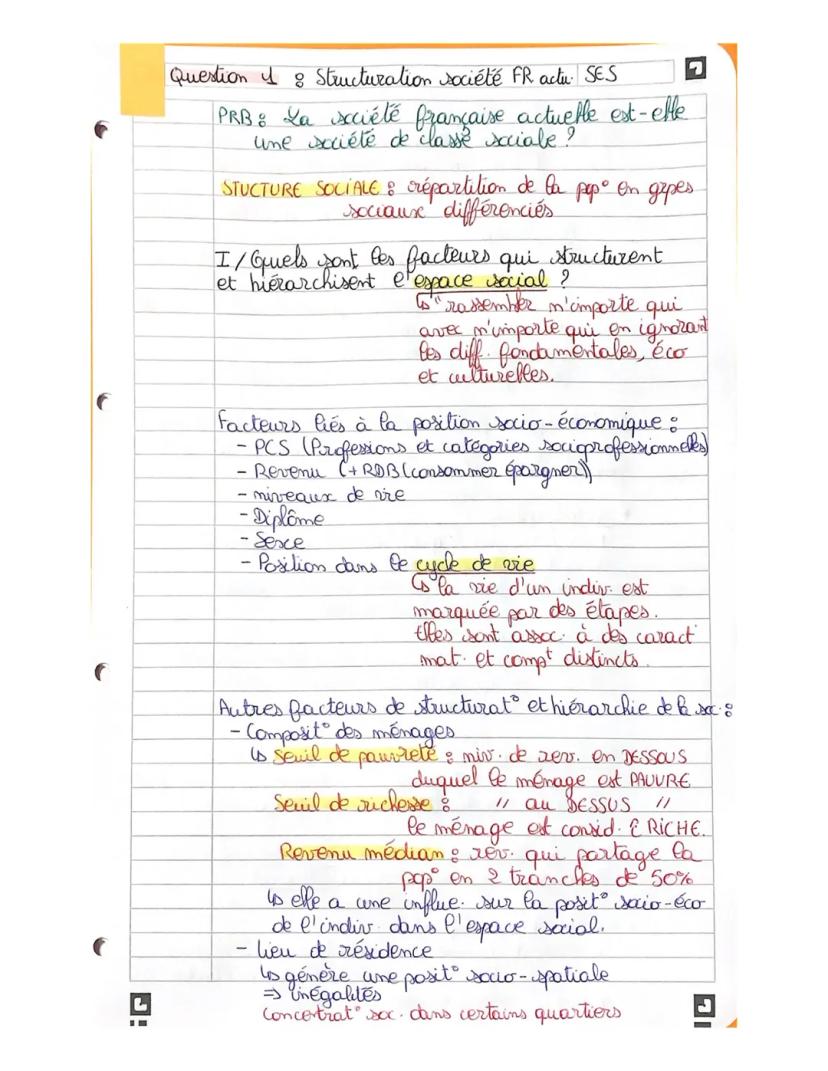 Question 1 : Structuration société FR actu. SES
PRB : La société française actuelle est-elle
une société de classe sociale ?
STUCTURE SOCIALE : répartition de la pop° en grpes
sociaux différenciés
I / Quels sont les facteurs qui structurent
et hiérarchisent l'espace social ?
↳ "rassembler n'importe qui
avec n'importe qui en ignorant
les diff. fondamentales, éco
et culturelles.
Facteurs liés à la position socio-économique :
- PCS (Professions et catégories socioprofessionnelles)
- Revenu (+ RDB (consommer épargner))
- niveaux de vie
- Diplôme
- Sexe
- Position dans le cycle de vie
↳ la vie d'un indiv. est
marquée par des étapes.
Elles sont assoc. à des caract
mat. et compt distincts.
Autres facteurs de structurat° et hiérarchie de la soc. :
- Composit° des ménages
↳ Seuil de pauvreté : niv. de rev. en DESSOUS
duquel le ménage est PAUVRE
Seuil de richesse : // au DESSUS //
le ménage est consid. Ê RICHE.
Revenu médian : rev. qui partage la
pop° en 2 tranches de 50%
↳ elle a une influe. sur la posit° socio-éco
de l'indiv. dans l'espace social.
- lieu de résidence
↳ génère une posit° socio-spatiale
⇒ inégalités
Concentrat° soc. dans certains quartiers